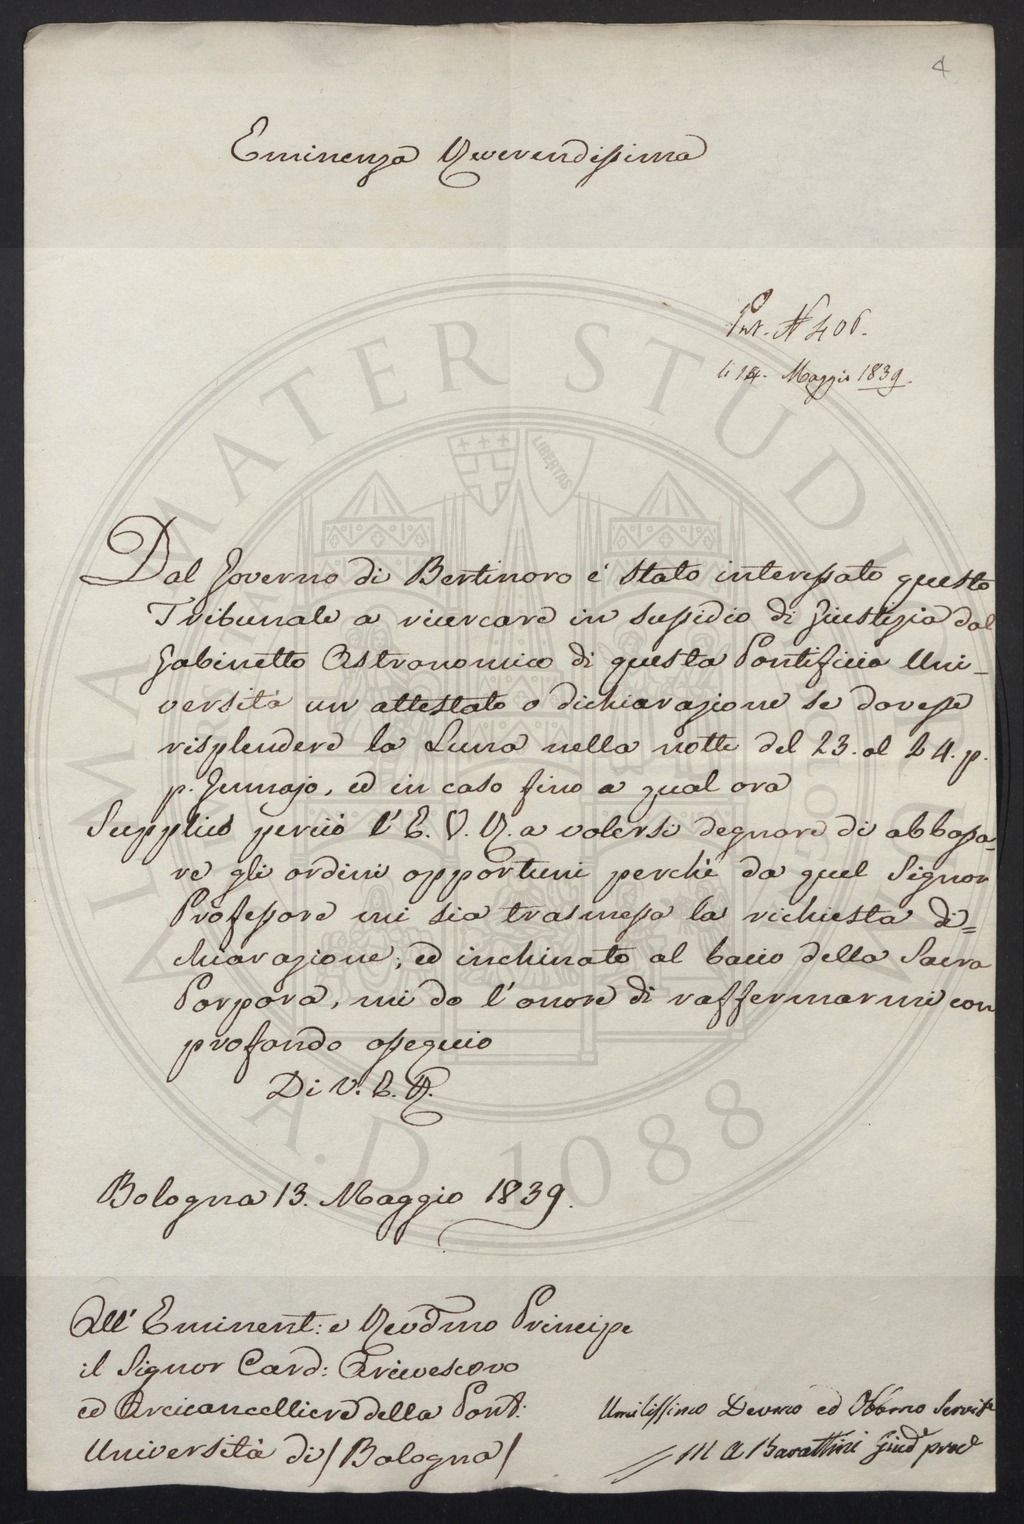 4
Eminenza Reverendissima
Prot. N 406.
li 14. Maggio 1839.
Dal Governo di Bertinoro è stato interessato questo
Tribunale a ricercare in sussidio di Giustizia dal
Gabinetto Astronomico di questa Pontificia Uni-
versità un attestato o dichiarazione se dovesse
risplendere la Luna nella notte del 23. al 24. p.
p. Gennajo, ed in caso fino a qual ora
Supplico perciò l'E. V. R. a volersi degnare di abbassa-
re gli ordini opportuni perchè da quel Signor
Professore mi sia trasmessa la richiesta di=
chiarazione; ed inchinato al bacio della Sacra
Porpora, mi do l'onore di raffermarmi con
profondo ossequio
Di V. E. R.
Bologna 13. Maggio 1839.
All' Eminent: e Revdmo Principe
il Signor Card: Arcivescovo
ed Arcicancelliere della Pont:
Università di / Bologna /
Umilissimo Devmo ed Obbmo Servit
M A Barattini Giud proc
ALMA MATER STUDIORUM
LIBERTAS
A.D. 1088